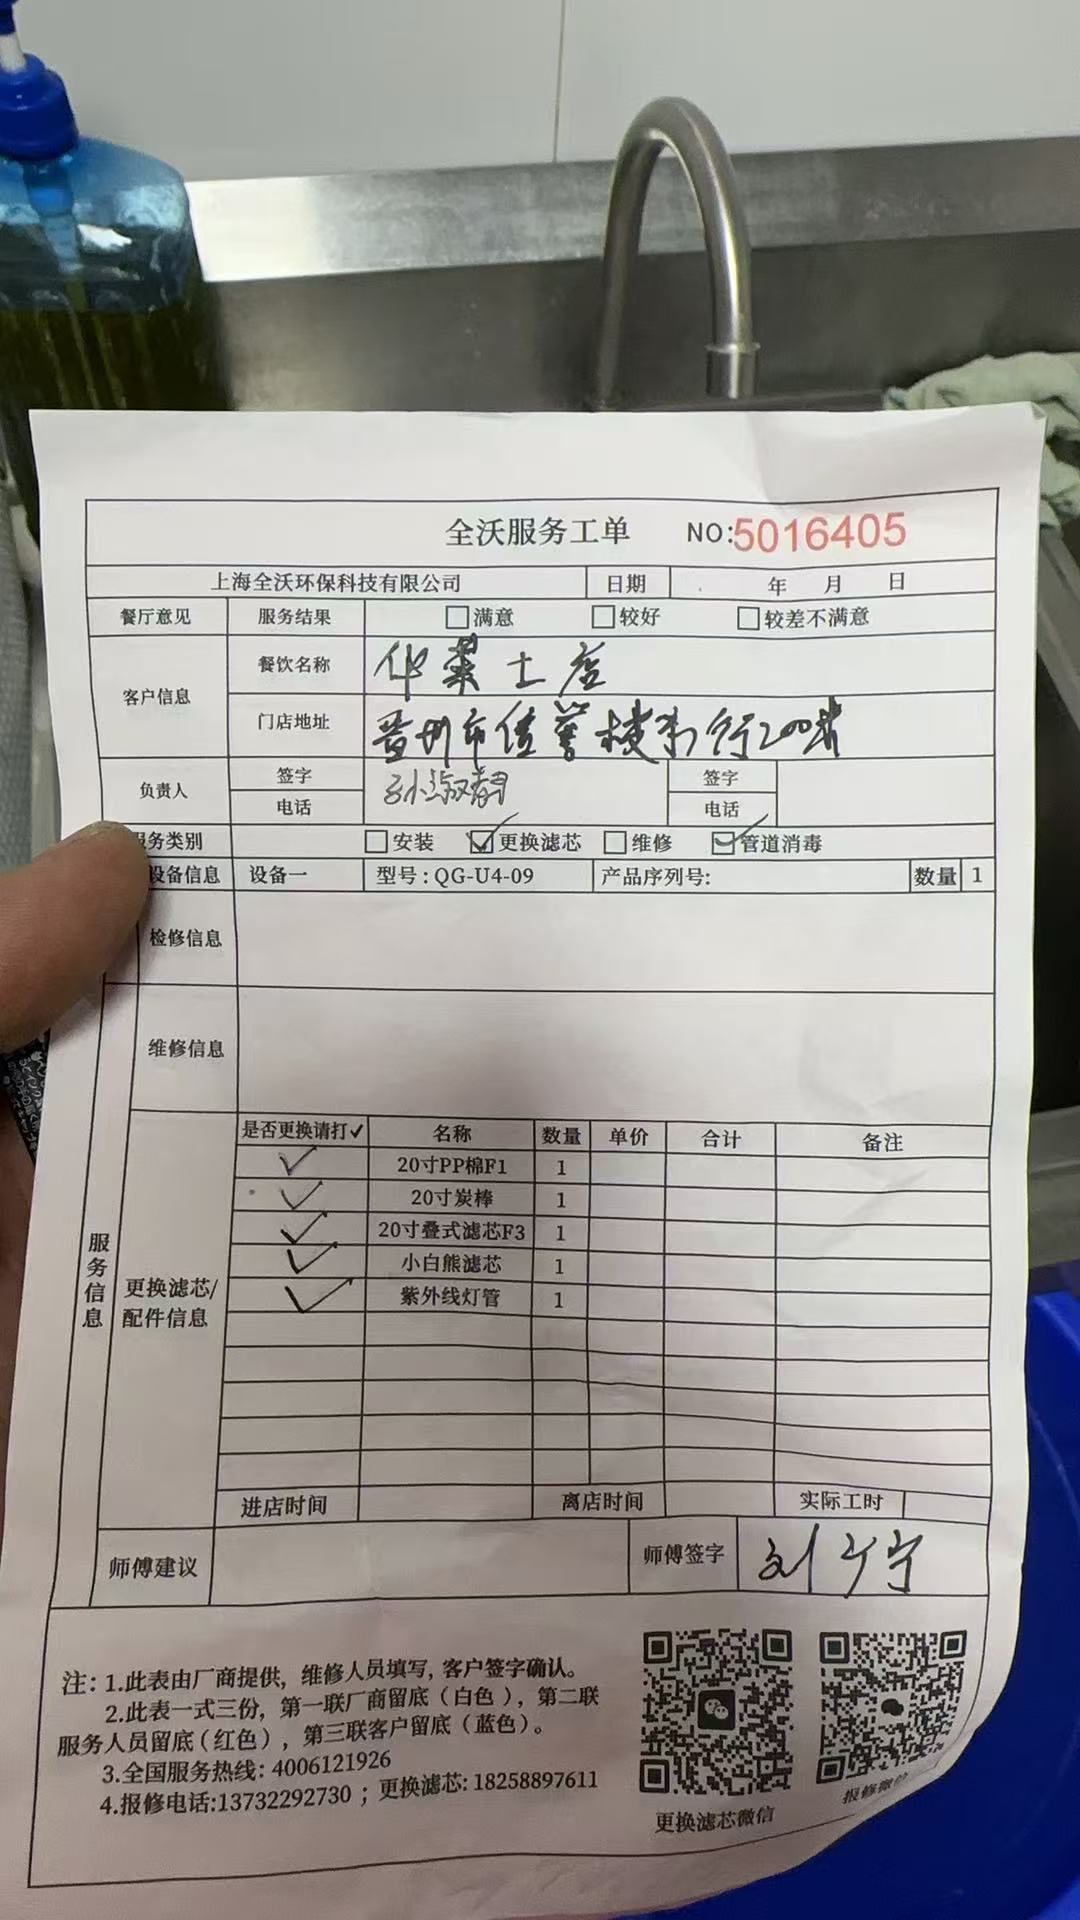 全沃服务工单 NO:5016405
上海全沃环保科技有限公司 日期 年 月 日
餐厅意见 服务结果 □满意 □较好 □较差不满意
客户信息 餐饮名称 华莱士店
门店地址 晋州市佳誉楼东行200米
负责人 签字 孙淑静 签字
电话 电话
服务类别 □安装 ☑更换滤芯 □维修 ☑管道消毒
设备信息 设备一 型号:QG-U4-09 产品序列号: 数量 1
检修信息
维修信息
服务信息
更换滤芯/配件信息
是否更换请打✓ 名称 数量 单价 合计 备注
✓ 20寸PP棉F1 1
✓ 20寸炭棒 1
✓ 20寸叠式滤芯F3 1
✓ 小白熊滤芯 1
✓ 紫外线灯管 1
进店时间 离店时间 实际工时
师傅建议 师傅签字 刘宁
注: 1.此表由厂商提供, 维修人员填写, 客户签字确认。
2.此表一式三份, 第一联厂商留底(白色), 第二联
服务人员留底(红色), 第三联客户留底(蓝色)。
3.全国服务热线: 4006121926
4.报修电话:13732292730 ; 更换滤芯: 18258897611
更换滤芯微信 报修微信